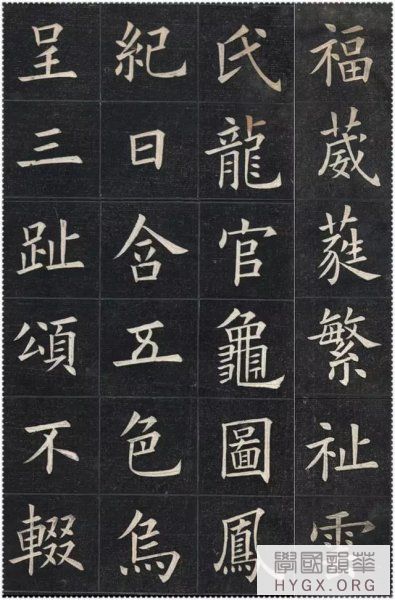 福葳蕤繁祉雲
氏龍官龜圖鳳
紀日含五色烏
呈三趾頌不輟
華韻國學
HYGX.ORG